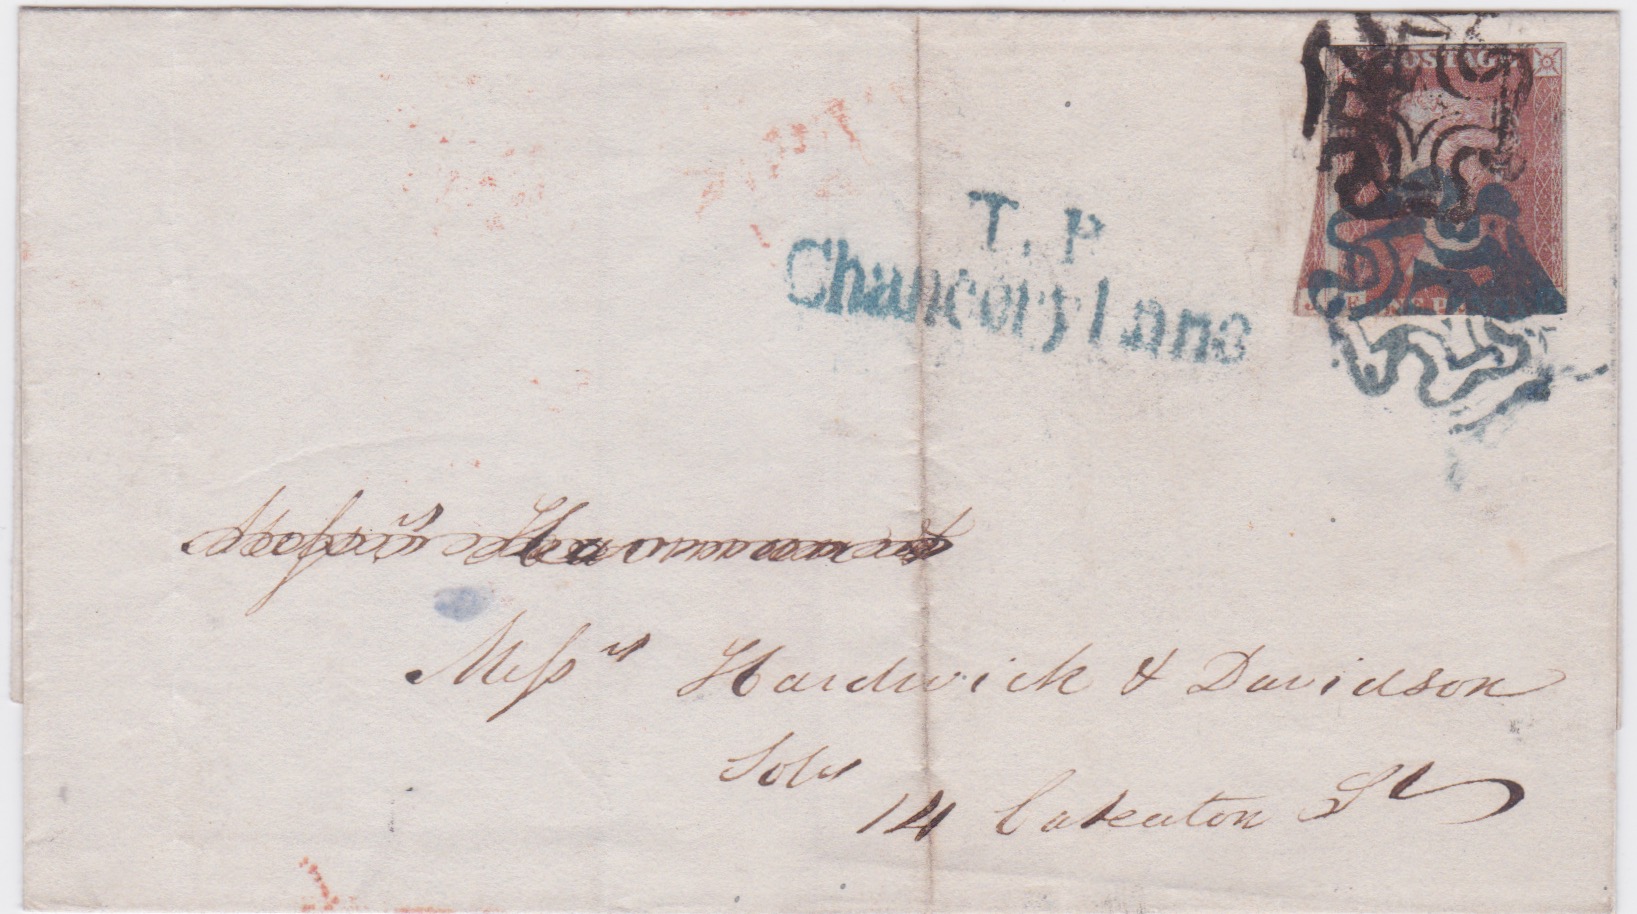 POSTAGE
T.P
Chancery Lane
J E
Messrs Hardwick & Davidson
Solrs
14 Cateaton St